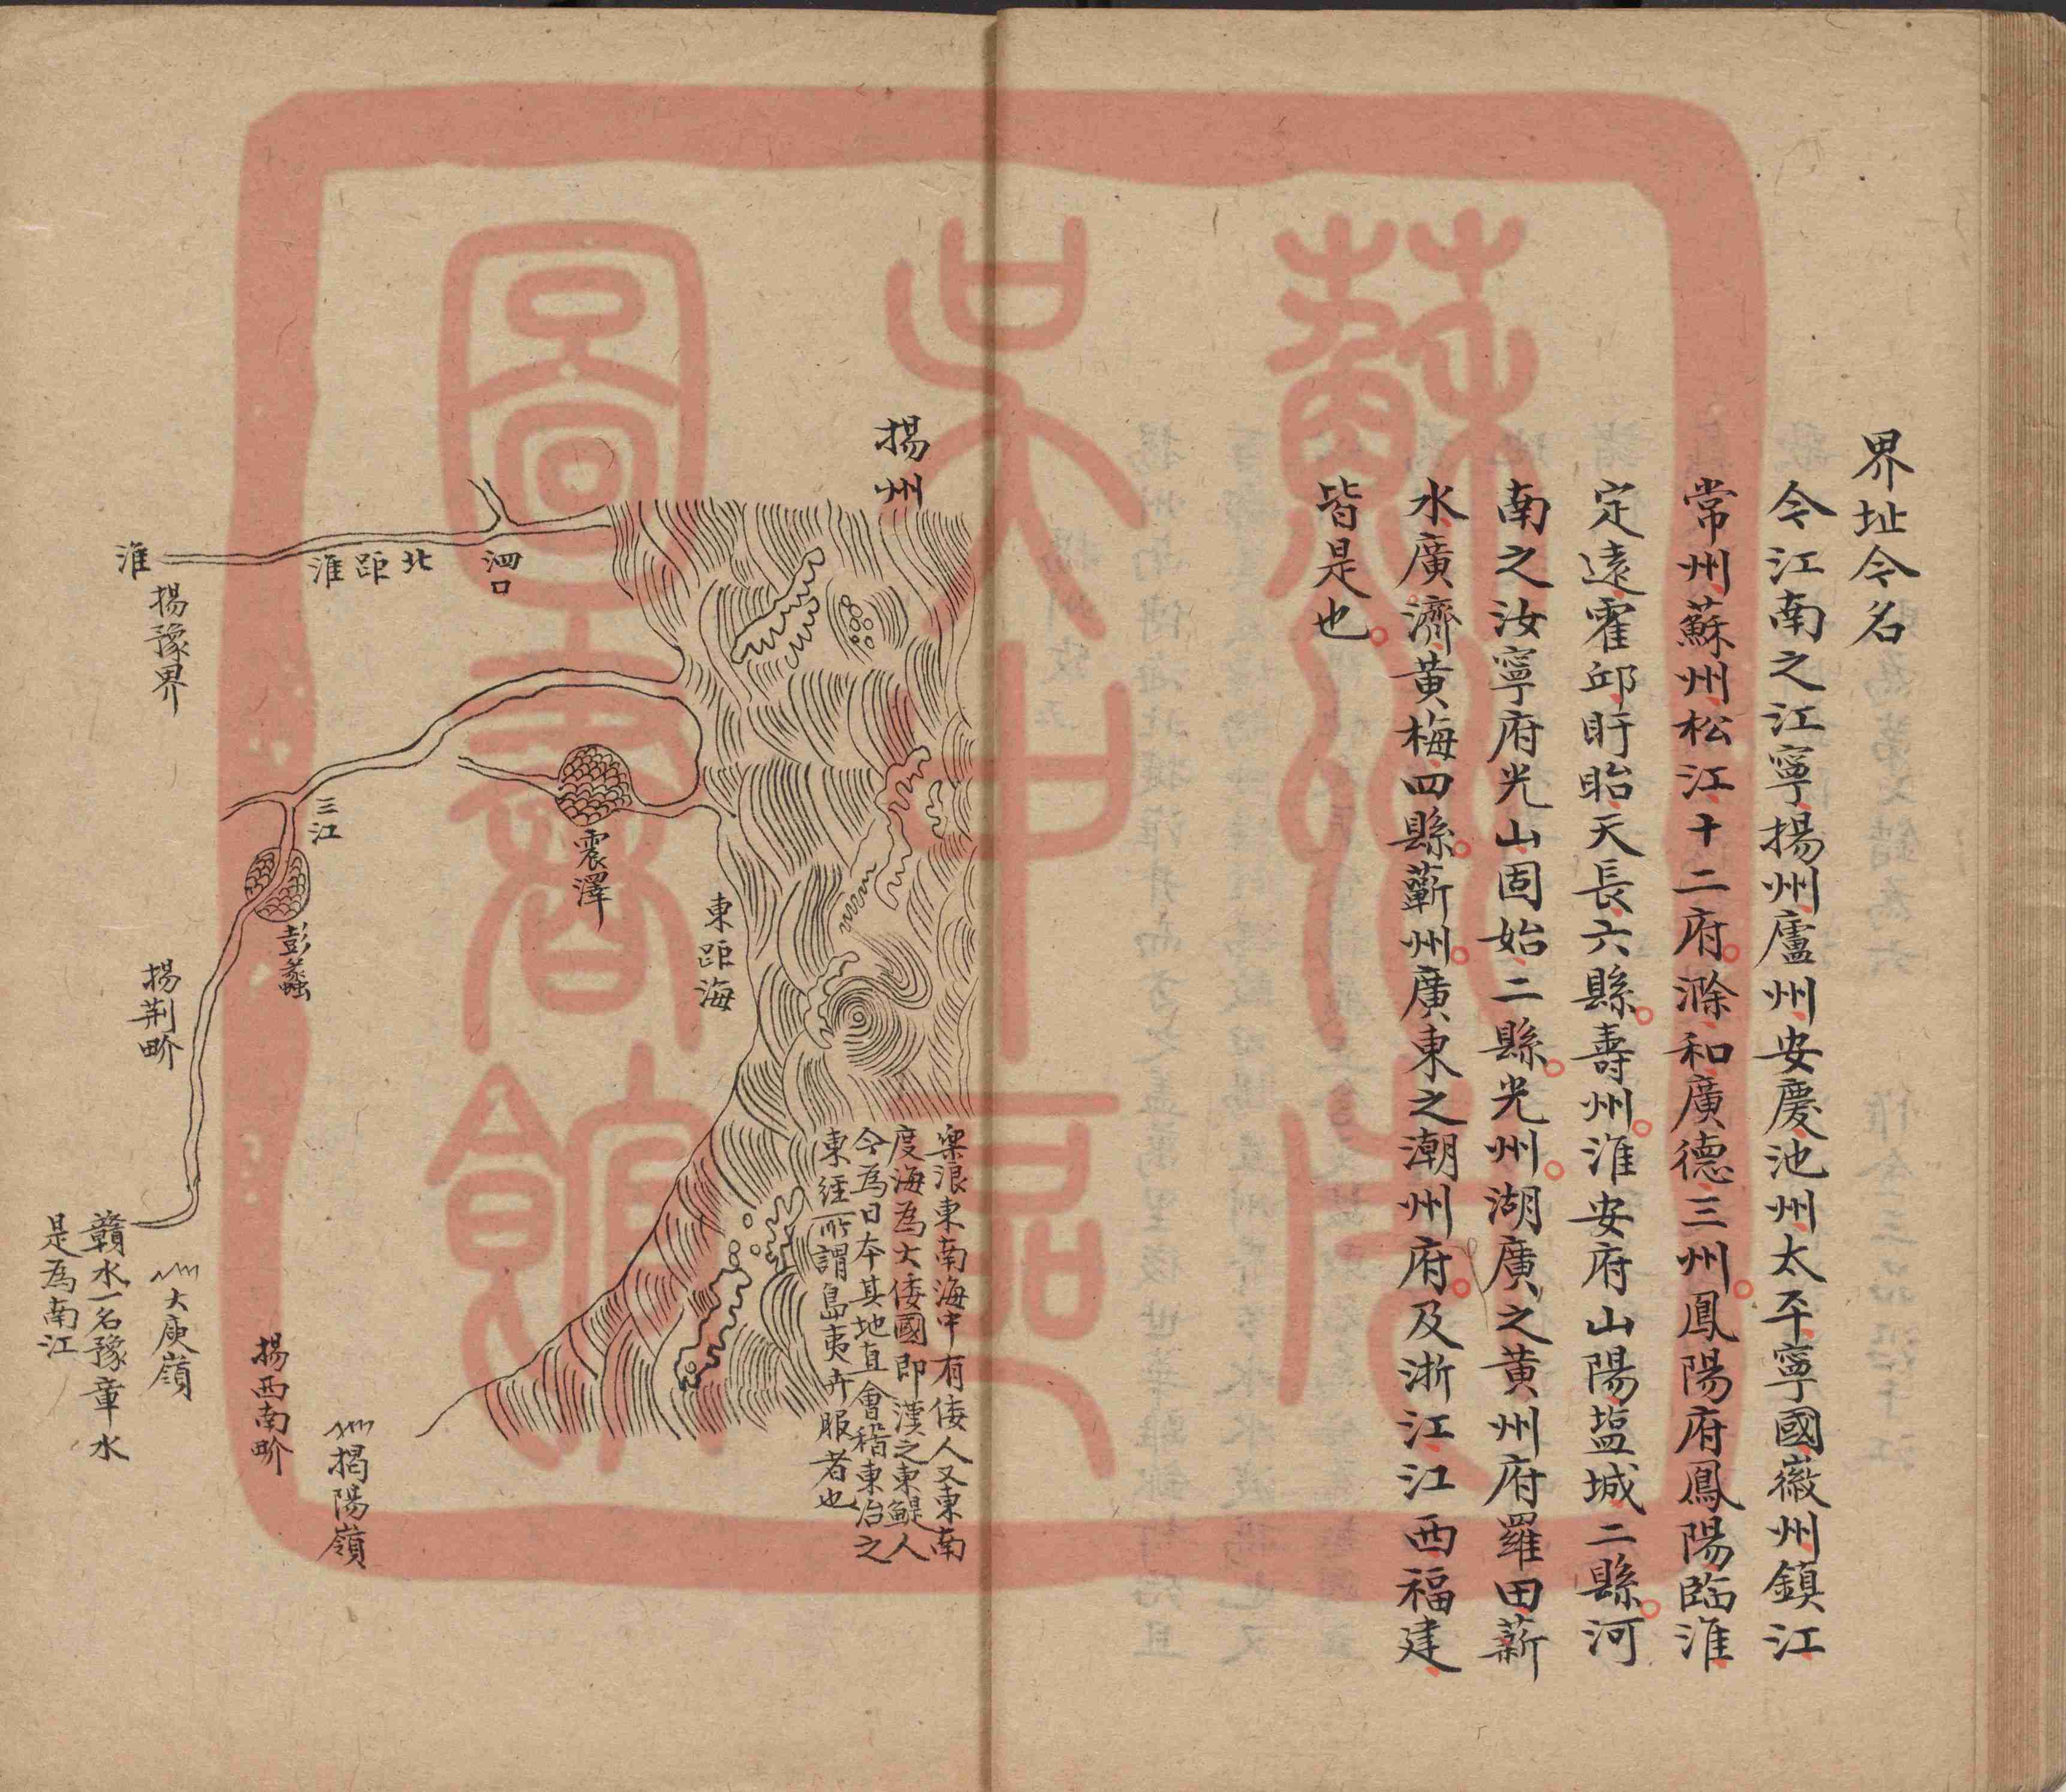 界址今名
今江南之江寧揚州廬州安慶池州太平寧國徽州鎮江
常州蘇州松江十二府滁和廣德三州鳳陽府鳳陽臨淮
定遠霍邱盱眙天長六縣壽州淮安府山陽塩城二縣河
南之汝寧府光山固始二縣光州湖廣之黃州府羅田蘄
水廣濟黃梅四縣蘄州廣東之潮州府及浙江江西福建
皆是也
揚州
泗口
北距淮
淮
揚豫界
三江
彭蠡
震澤
東距海
揚荆畍
樂浪東南海中有倭人又東南
度海為大倭國即漢之東鯷人
今為日本其地直會稽東冶之
東經所謂島夷卉服者也
揭陽嶺
揚西南畍
大庾嶺
贛水一名豫章水
是為南江
蘇州
吴中區
圖書館